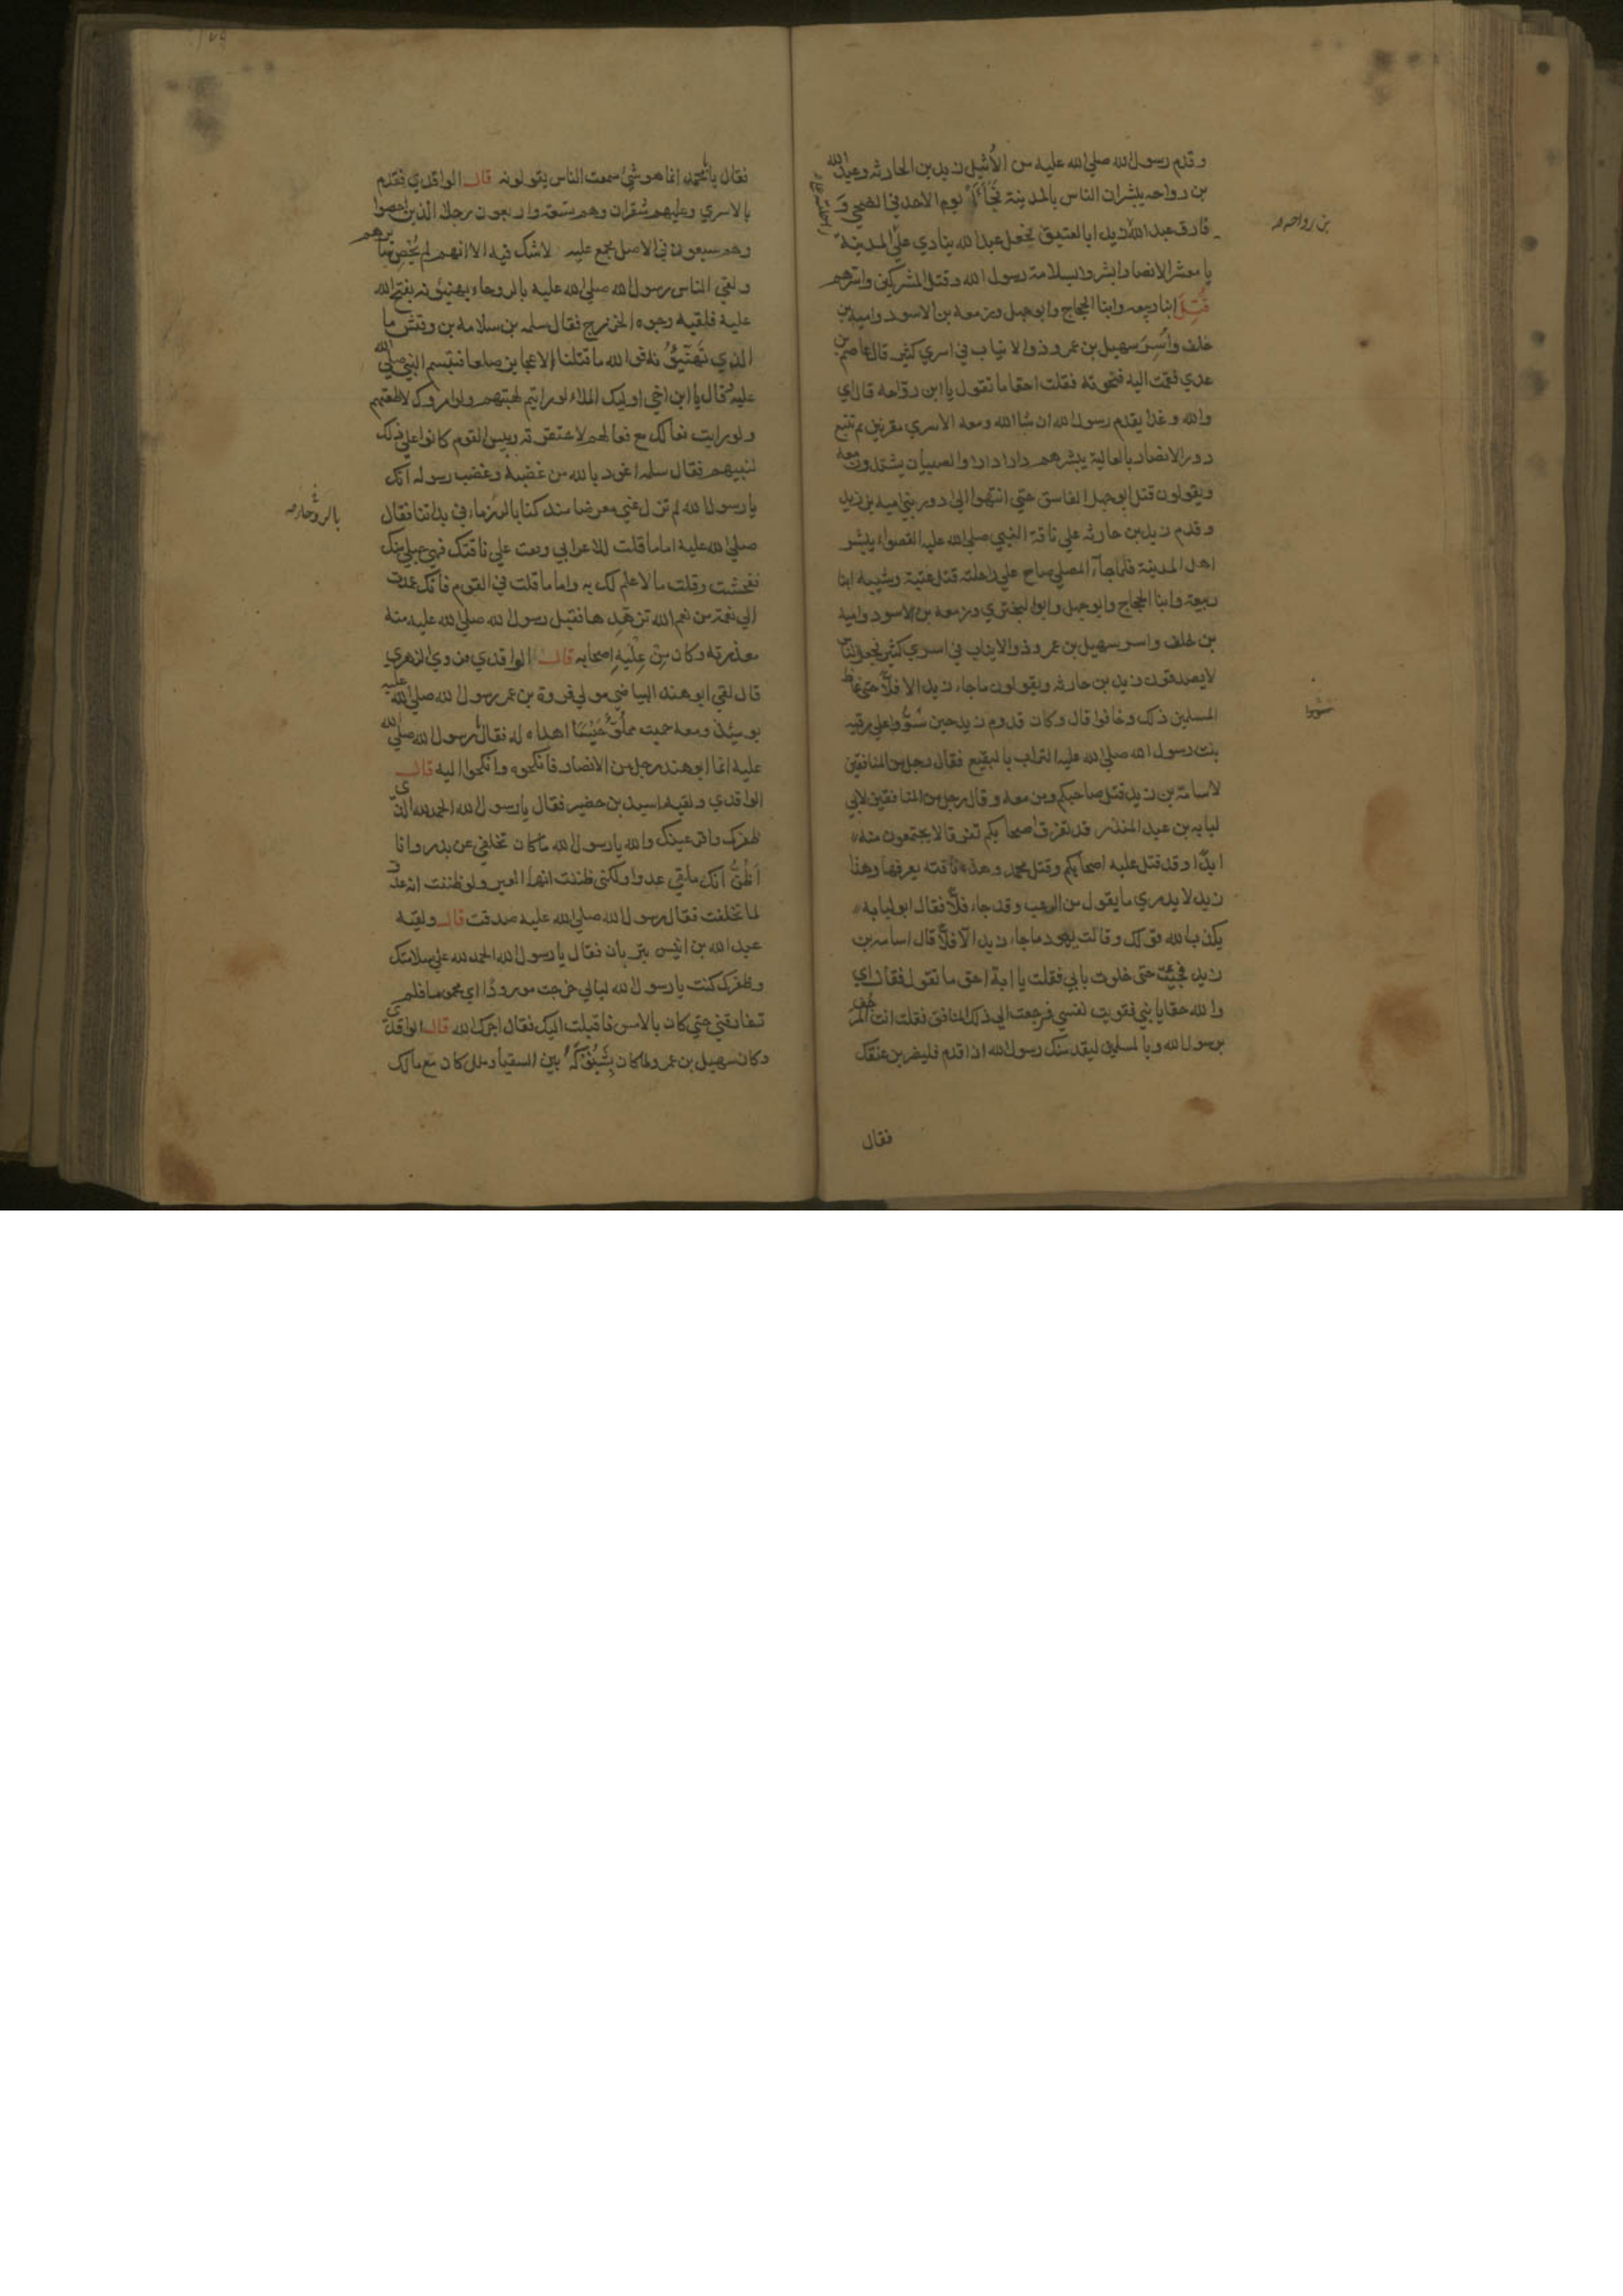 وقدم رسول الله صلي الله عليه من الأثيل زيد بن الحارثه وعبد الله
بن رواحه يبشران الناس بالمدينة فجاءا يوم الاحد في الضحي و
فارق عبد الله زيدا بالعقيق فجعل عبد الله ينادي علي المدينة
يا معشر الانصار ابشروا بسلامة رسول الله وقتل المشركين واسرهم
قُتِلَ ابنا ربيعه وابنا الحجاج وابو جهل وزمعه بن الاسود واميه بن
خلف وأُسِرَ سهيل بن عمرو ذو الانياب في اسري كثير قال عاصم بن
عدي فقمت اليه فنحوته فقلت احقا ما تقول يا ابن رواحه قال اي
والله وغدا يقدم رسول الله ان شا الله ومعه الاسري مقرنين ثم تتبع
دور الانصار بالعالية يبشرهم دارا دارا والصبيان يشتدون معه
ويقولون قتل ابو جهل الفاسق حتي انتهوا الي دور بني اميه بن زيد
وقدم زيد بن حارثه علي ناقة النبي صلي الله عليه القصواء يبشر
اهل المدينة فلما جاء المصلي صاح علي راحلته قتل عتبة وشيبه ابنا
ربيعة وابنا الحجاج وابو جهل وابو البختري وزمعه بن الاسود واميه
بن خلف واسر سهيل بن عمرو ذو الانياب في اسري كثير فجعل الناس
لا يصدقون زيد بن حارثه ويقولون ما جاء زيد الا فلاّ حتي غاظ
المسلمين ذلك وخافوا قال وكان قدوم زيد حين سُوُّوا علي رقيه
بنت رسول الله صلي الله عليه التراب بالبقيع فقال رجل من المنافقين
لاسامة بن زيد قتل صاحبكم ومن معه وقال رجل من المنافقين لابي
لبابه بن عبد المنذر قد تفرق اصحابكم تفرقا لا يجتمعون منه
ابدًا وقد قتل عليه اصحابكم وقتل محمد وهذه ناقته نعرفها وهذا
زيد لا يدري ما يقول من الرعب وقد جاء فلاّ فقال ابو لبابه
يكذب الله قولك وقالت يهود ما جاء زيد الا فلاّ قال اسامه بن
زيد فجئت حتي خلوت بابي فقلت يا ابة احق ما تقول فقال اي
والله حقا يا بني فقويت نفسي فرجعت الي ذلك المنافق فقلت انت المرجف
برسول الله وبالمسلمين ليقدمنك رسول الله اذا قدم فليضربن عنقك
فقال
بن رواحه
سووا
فقال يا با محمد انما هو شئ سمعت الناس يقولونه قال الواقدي فقدم
بالاسري وعليهم شقران وهم تسعة واربعون رجلا الذين احصوا
وهم سبعون في الاصل مجمع عليه لا شك فيه الا انهم لم يُحْصَ سايرهم
ولقي الناس رسول الله صلي الله عليه بالروحاء يهنئونه بفتح الله
عليه فلقيه وجوه الخزرج فقال سلمه بن سلامه بن وقش ما
الذي تهنئونه فوالله ما قتلنا الا عجايز صلعا فتبسم النبي صلي الله
عليه فقال يا ابن اخي اوليك الملاء لو رايتهم لهبتهم ولو امروك لاطعتهم
ولو رايت فعالك مع فعالهم لاحتقرته وبيس القوم كانوا علي ذلك
لنبيهم فقال سلمه اعوذ بالله من غضبه وغضب رسوله انك
يا رسول الله لم تزل عني معرضا منذ كنا بالروحاء في بداتنا فقال
صلي الله عليه اما ما قلت للاعرابي وقعت علي ناقتك فهي حبلي منك
ففحشت وقلت ما لا علم لك به واما ما قلت في القوم فانك عمدت
الي نعمة من نعم الله تزهدها فقبل رسول الله صلي الله عليه منه
معذرته وكان من عِلْيَةِ اصحابه قال الواقدي فروي الزهري
قال لقي ابو هند البياضي مولي فروة بن عمر رسول الله صلي الله عليه
يومئذ ومعه حميت مملوّ حَيْسًا اهداه له فقال رسول الله صلي الله
عليه انما ابو هند رجل من الانصار فانكحوه وانكحوا اليه قال
الواقدي ولقيه اسيد بن حضير فقال يا رسول الله الحمد لله الذي
ظفرك واقر عينك والله يا رسول الله ما كان تخلفي عن بدر وانا
اَظُنُّ انك ملقي عدوا ولكني ظننت انها العير ولو ظننت انه عدو
لما تخلفت فقال رسول الله صلي الله عليه صدقت قال ولقيه
عبد الله بن انيس بتربان فقال يا رسول الله الحمد لله علي سلامتك
وظفرك كنت يا رسول الله ليالي خرجت مورودًا اي محموما فلم
تفارقني حتي كان بالامس فاقبلت اليك فقال اجرك الله قال الواقدي
وكان سهيل بن عمرو لما كان بشنوكة بين السقيا وملل كان مع مالك
بالروحاء